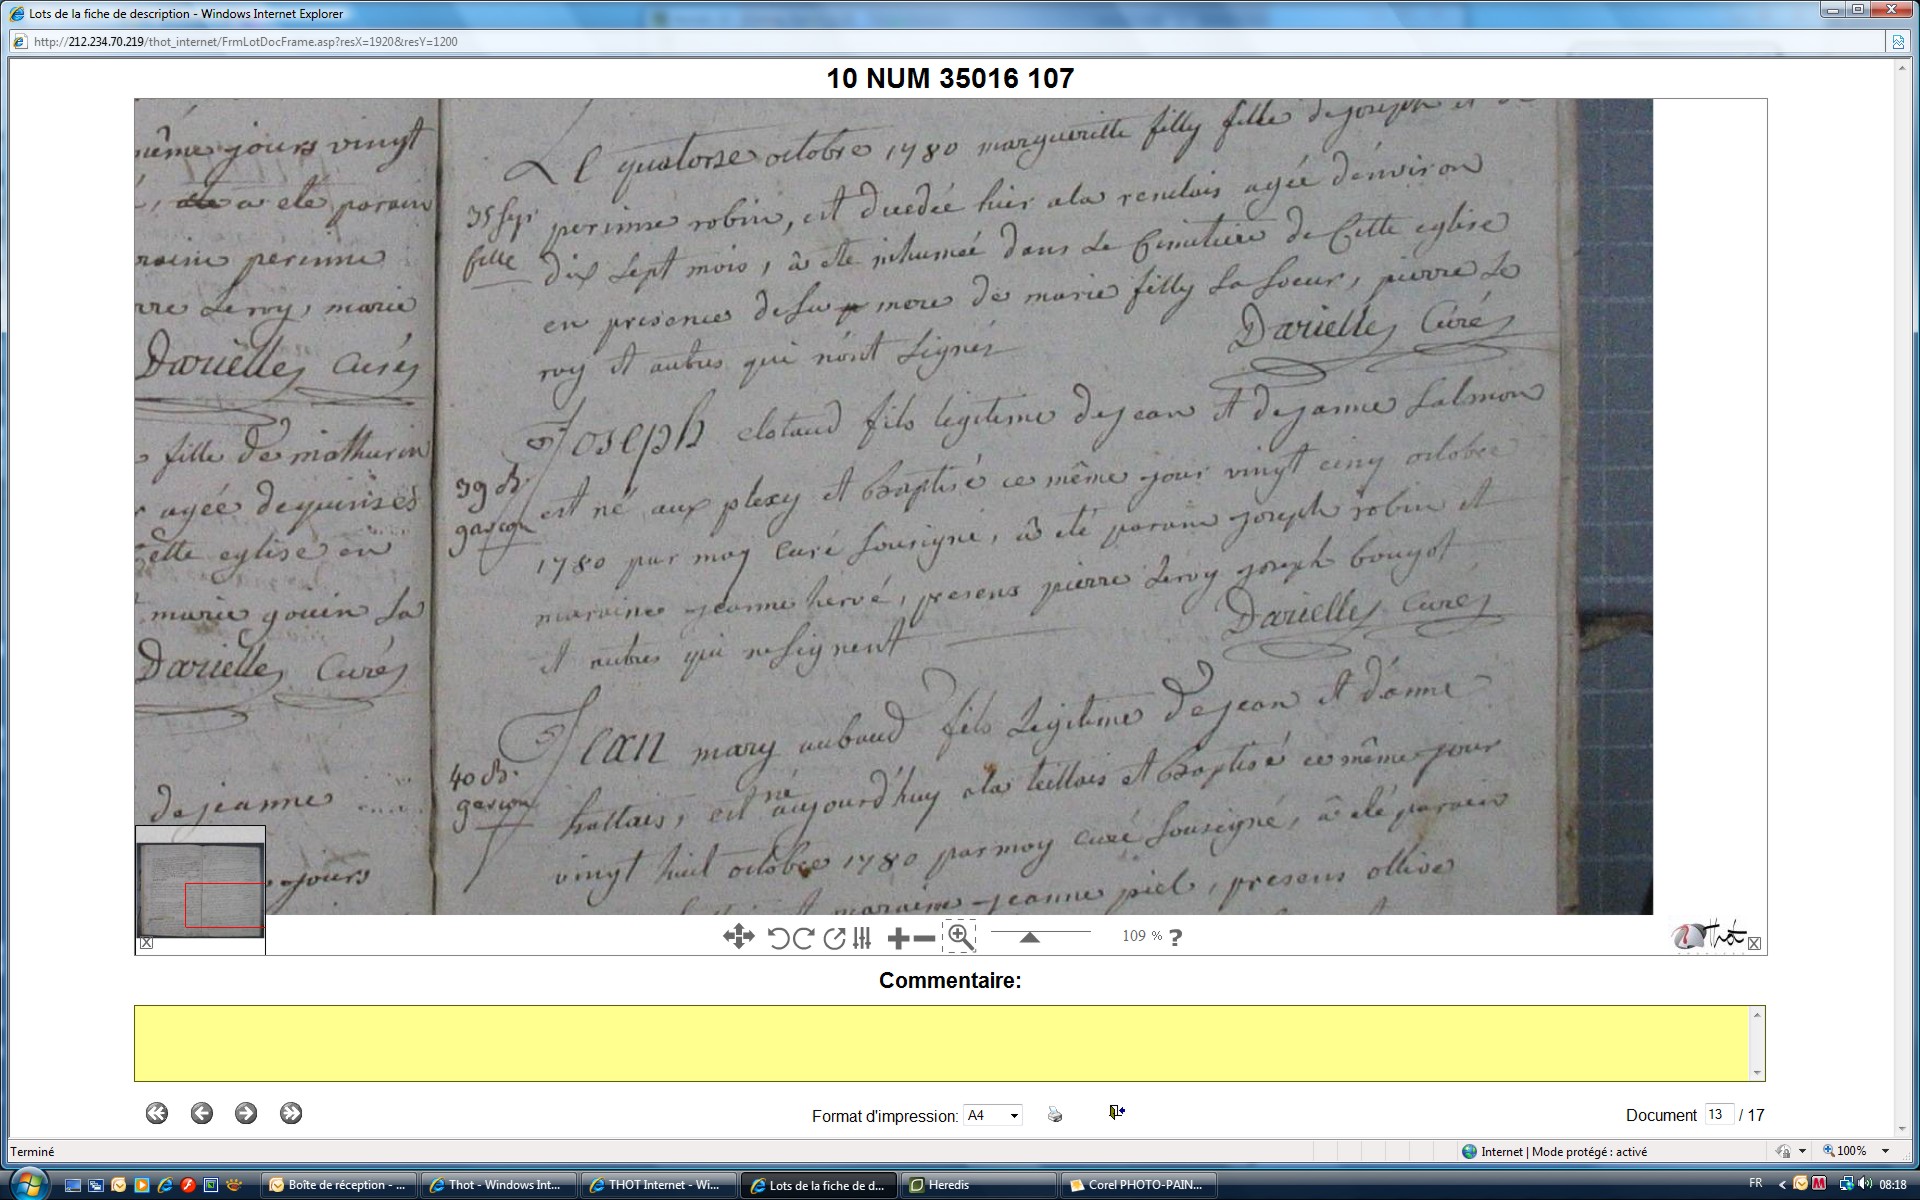 Lots de la fiche de description - Windows Internet Explorer
http://212.234.70.219/thot_internet/FrmLotDocFrame.asp?resX=1920&resY=1200
10 NUM 35016 107
même jours vingt
a eté parain
raine perinne
rre Leroy, marie
Darielles Curés
fille de mathurin
agée dequinses
cette eglise en
marie gouin La
Darielles Curés
de jeanne
jours
Le quatorse octobre 1780 margueritte filly fille de joseph et de
35 sepr perinne robin, est decedée hier ala renclais agée d'environ
fille dix sept mois, à eté inhumée dans Le Cimetiere de Cette eglise
en presence desa mere de marie filly La Soeur, pierre Le
roy et autres qui n'ont Signés
Darielles Curés
Joseph clotaud fils legitime dejean et dejanne Salmon
39 B. est né aux plexy et Baptisé ce même jour vingt cinq octobre
garçon 1780 par moy curé Sousigné, à eté parain joseph robin et
maraine jeanne hervé, presens pierre Leroy joseph bougot
et autres qui nesignent
Darielles Curés
Jean mary aubaud fils Legitime dejean et d'anne
né
40 B. hallais, est aujourd'huy ala teillais et Baptisé ce même jour
garçon vingt huit octobre 1780 par moy curé Sousigné, à eté parain
et maraine jeanne piel, presens ollive
109 % ?
Thot
Commentaire:
Format d'impression: A4
Document 13 / 17
Terminé
Internet | Mode protégé : activé
100%
Boîte de réception - ...
Thot - Windows Int...
THOT Internet - Wi...
Lots de la fiche de d...
Heredis
Corel PHOTO-PAIN...
FR
08:18